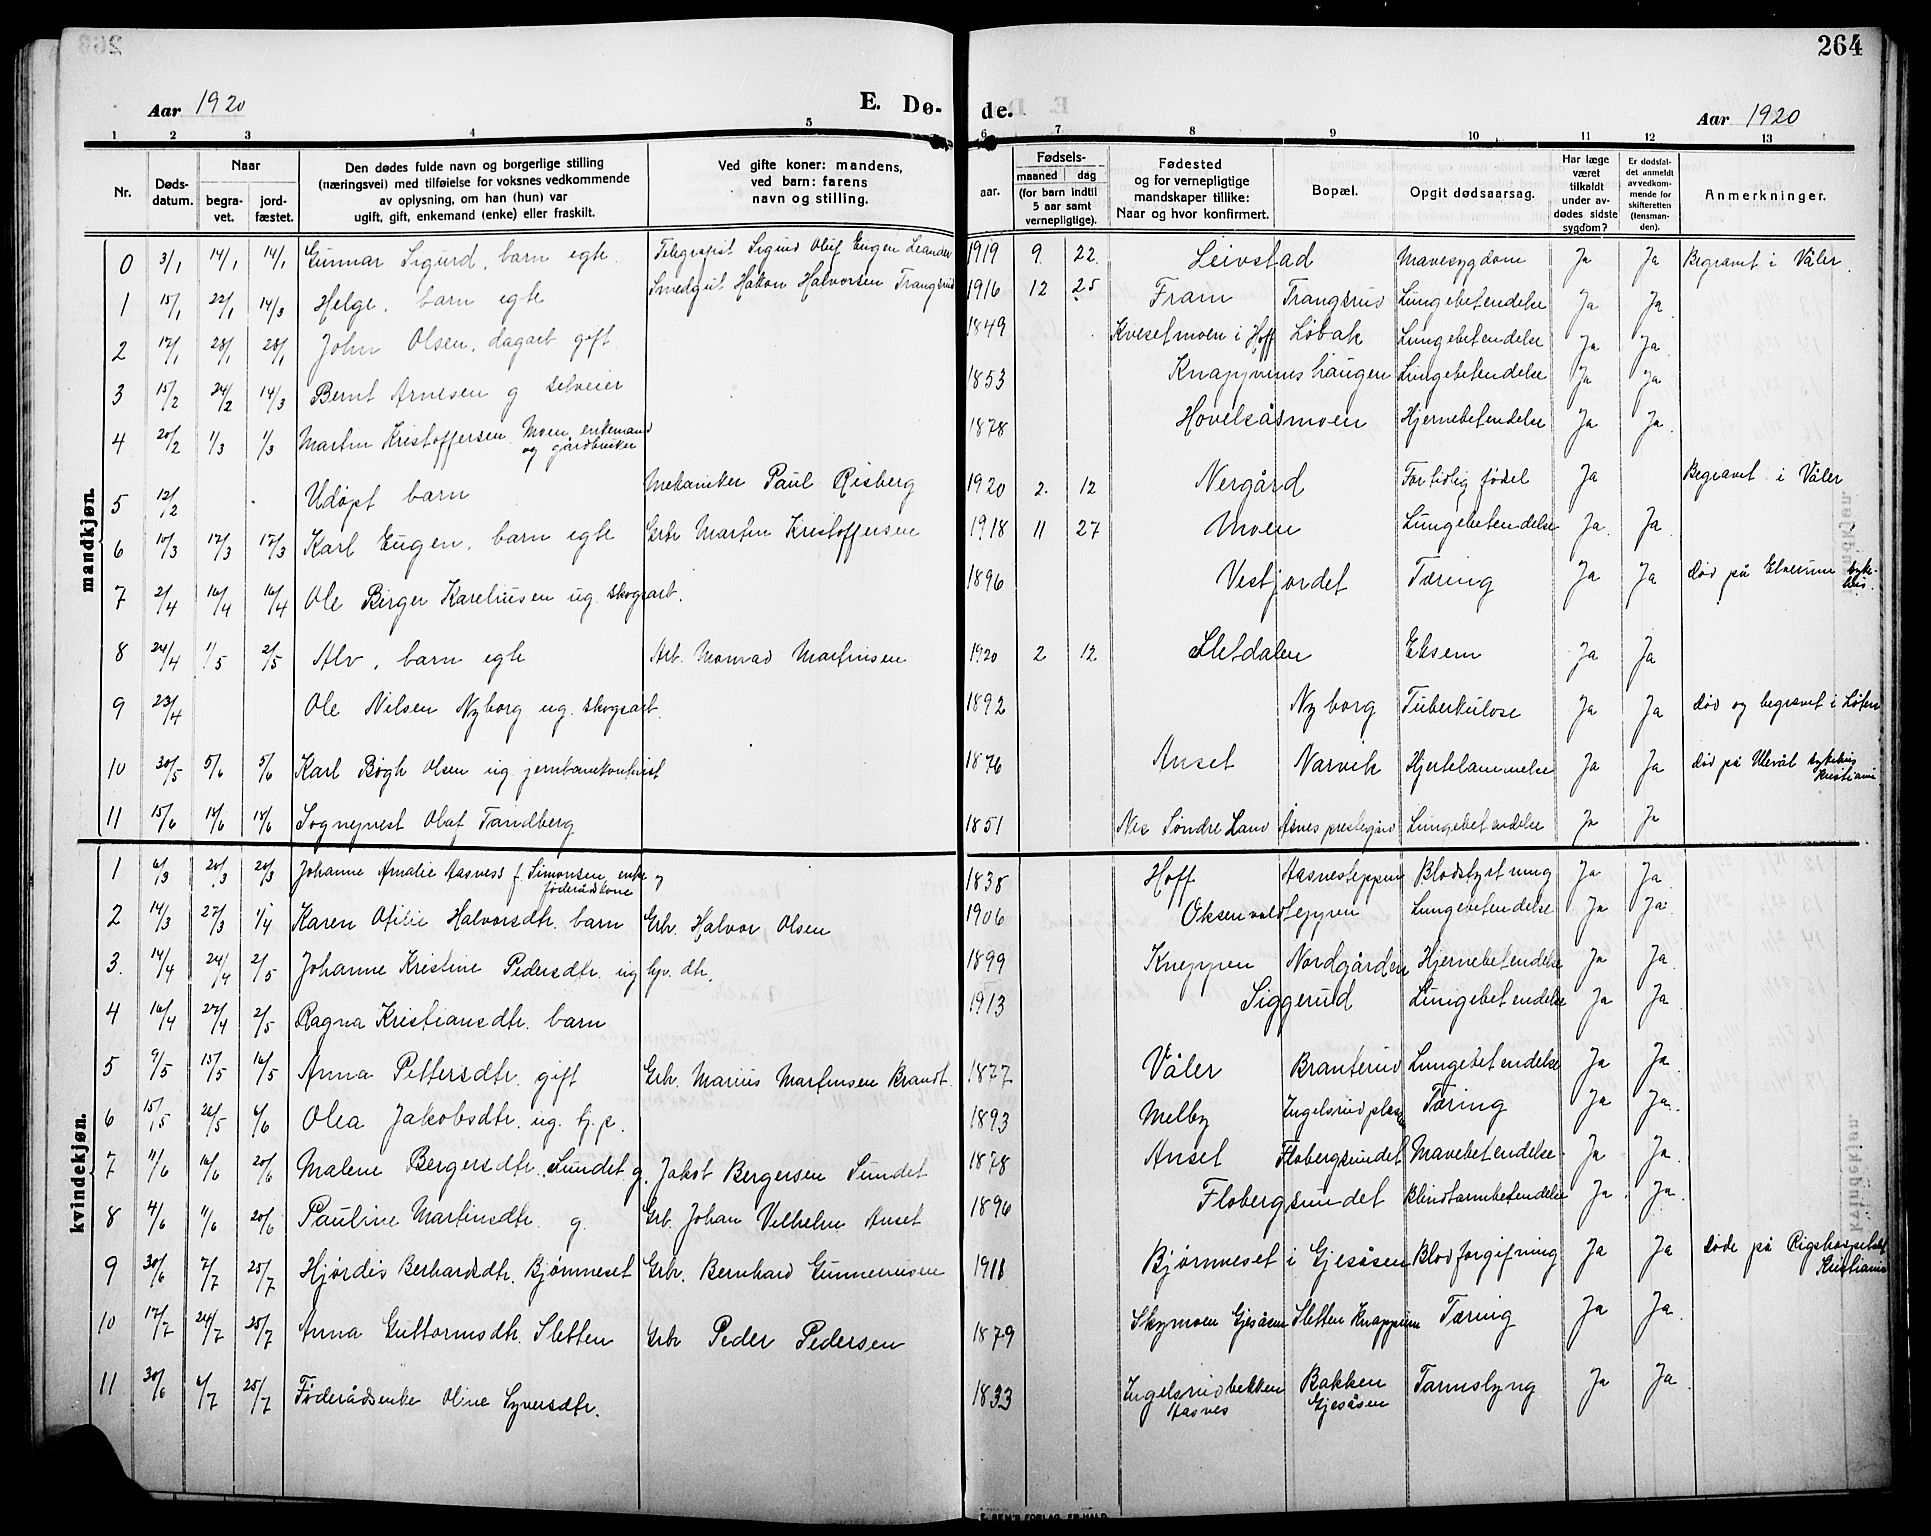 264
Aar 1920 E. Dø- de. Aar 1920
1 2 3 4 5 6 7 8 9 10 11 12 13
Nr. Døds-datum. Naar begra-vet. jord-fæstet. Den dødes fulde navn og borgerlige stilling (næringsvei) med tilføielse for voksnes vedkommende av oplysning, om han (hun) var ugift, gift, enkemand (enke) eller fraskilt. Ved gifte koner: mandens, ved barn: farens navn og stilling. aar. Fødsels- maaned dag (for barn indtil 5 aar samt vernepligtige). Fødested og for vernepligtige mandskaper tillike: Naar og hvor konfirmert. Bopæl. Opgit dødsaarsag. Har læge været tilkaldt under av-dødes sidste sygdom? Er dødsfal-det anmeldt av vedkom-mende for skifteretten (lensman-den). Anmerkninger.
mandkjøn.
0 3/1 14/1 14/1 Gunnar Sigurd, barn egte Telegrafist Sigurd Oluf Eugen Leander 1919 9 22. Leivstad Mavesygdom Ja Ja Begravet i Våler.
1 15/1 22/1 14/3 Helge, barn egte Smedgut Håkon Halvorsen Trangsrud 1916 12 25 Fram Trangsrud Lungebetendelse Ja Ja.
2 17/1 28/1 28/1 John Olsen, dagarb gift. 1849 Kvesetmoen i Hoff Løbak Lungebetendelse Ja Ja.
3 15/2 24/2 14/3 Bernt Arnesen g selveier 1853 Knappvens haugen Lungebetendelse Ja Ja
4 20/2 1/3 1/3 Martin Kristoffersen Moen, enkemand og gårdbruker 1878 Hovelsåsmoen Hjernebetendelse Ja Ja.
5 12/2 Udøpt barn Mekaniker Paul Risberg 1920 2. 12 Nergård For tidlig fødel Ja Begravet i Våler
6 10/3 17/3 17/3 Karl Eugen, barn egte Grbr Martin Kristoffersen 1918 11 27 Moen Lungebetendelse Ja. Ja.
7 2/4 16/4 16/4 Ole Birger Kareliusen ug. skogsarb. 1896 Vestjordet Tæring Ja Ja Død på Elverum syke-hus.
8 24/4 1/5 2/5 Alv, barn egte Arb. Monrad Martinsen 1920 2 12 Sletdalen Eksem Ja Ja
9 23/4 Ole Nilsen Nyborg ug. skogsarb. 1892 Nyborg Tuberkulose Ja Ja Død og begravet i Løten
10 30/5 5/6 5/6 Karl Bøgh Olsen ug jernbanekontorist 1876 Anset Narvik Hjertelammelse Ja Ja. Død på Ulevål sykehus Kristiania
11 15/6 18/6 18/6 Sogneprest Oluf Tandberg 1851 Nes Søndre Land Åsnes prestegård Lungebetendelse Ja Ja
kvindekjøn.
1 6/3 20/3 20/3 Johanne Amalie Aasness f. Simonsen, enke, føderådskone 1838 Hoff Aasnesteppen Blodstyrtning Ja Ja.
2 14/3 27/3 1/4 Karen Otilie Halvorsdtr. barn Grb. Halvor Olsen 1906 Oksenvoldteppen Lungebetendelse Ja Ja.
3. 14/4 24/4 2/5 Johanne Kristine Pedersdtr. ug hjv. dtr. 1899 Kneppen Nordgården Hjernebetendelse Ja Ja.
4 16/4 27/4 2/5 Ragna Kristiansdtr. barn 1913 Siggerud Lungebetendelse Ja Ja.
5 9/5 15/5 16/5 Anna Pettersdtr. gift Grbr. Marius Martinsen Brandt. 1877 Våler Branterud Lungebetendelse Ja Ja.
6 15/5 28/5 6/6 Olea Jakobsdtr. ug. tj. p. 1893 Melby Ingelsrud plads Tæring Ja Ja.
7 11/6 16/6 20/6 Malene Bergersdtr. Sundet g. Jakob Bergersen Sundet 1878 Anset Flobergsundet Mavebetendelse Ja Ja.
8 4/6 11/6 20/6 Pauline Martinsdtr. g. Grb. Johan Vilhelm Anset 1896 Flobergsundet Blindtarmbetendelse Ja. Ja.
9 30/6 7/7 25/7 Hjørdis Berhardsdtr. Bjørnneset Grbr. Bernhard Gunnerusen 1918 Bjørnneset i Gjesåsen Blodforgifning Ja Ja Døde på Rigshospitalet Kristiania
10 17/7 24/7 25/7 Anna Guttormsdtr. Sletten Grbr Peder Pedersen 1879 Skymoen Gjesåsen Sletten Knappum Tæring Ja Ja.
11 30/6 6/7 25/7 Føderådsenke Oline Syversdtr. 1833 Ingelsrudbekken Aasnes Bakken Gjesåsen Tarmslyng Ja Ja.